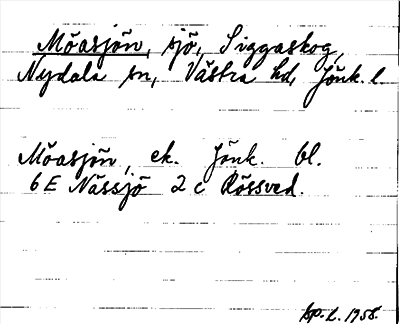 Möasjön, sjö, Siggaskog,
Nydala sn, Västra hd, Jönk. l.
Möasjön, ek. Jönk. bl.
6 E Nässjö 2 c Rössved.
sp. l. 1958.